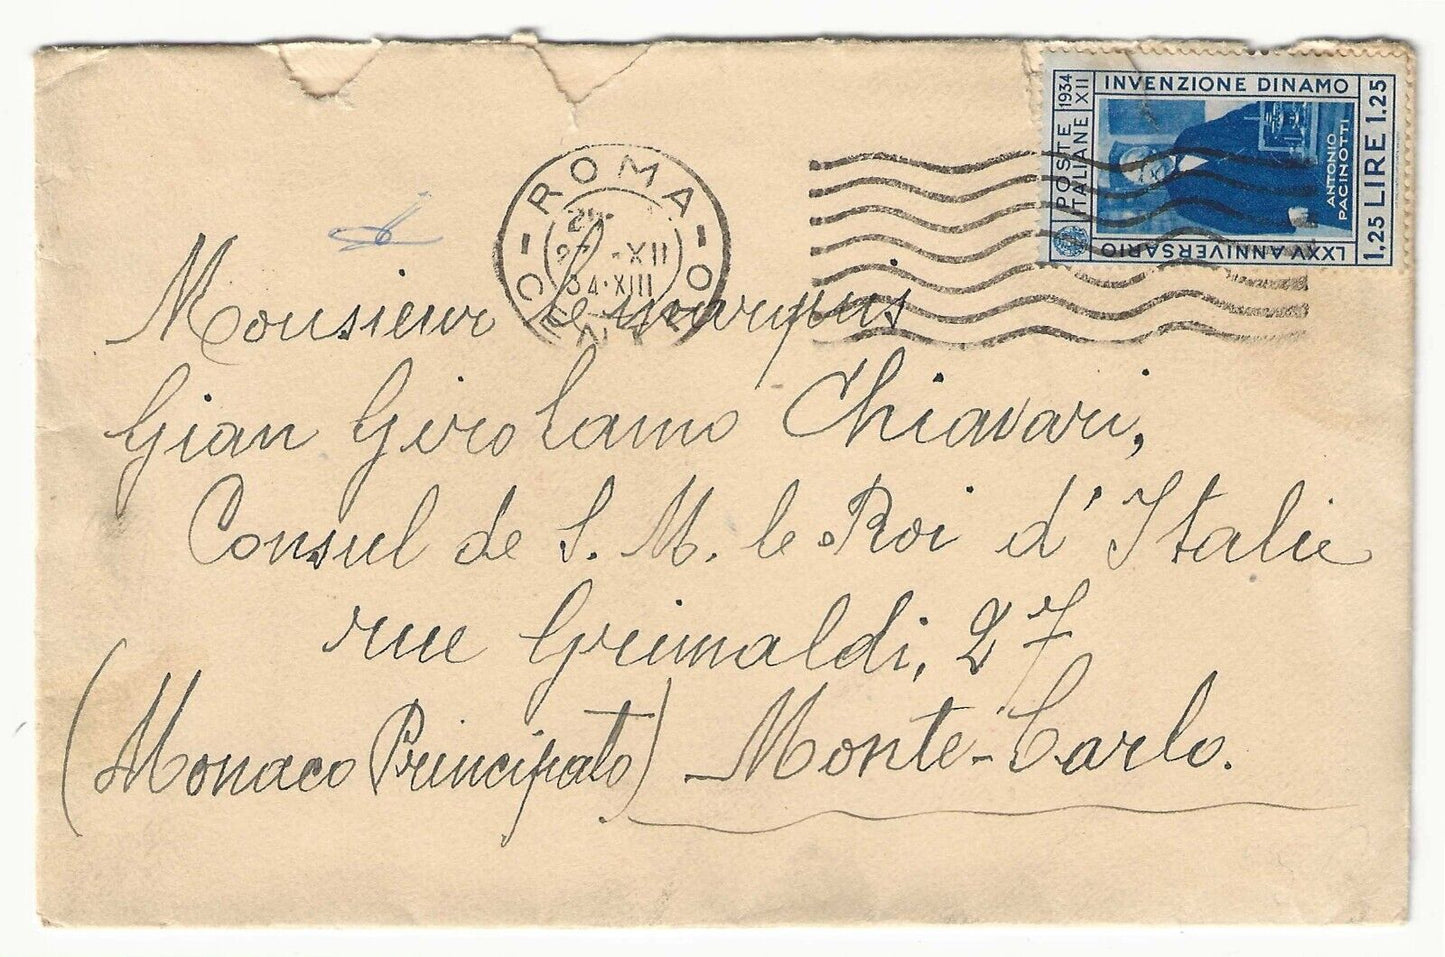 INVENZIONE DINAMO
1934
XII
POSTE
ITALIANE
ANTONIO
PACINOTTI
LXXV ANNIVERSARIO
1,25 LIRE 1.25
ROMA
-XII
34·XIII
Monsieur le marquis
Gian Girolamo Chiavari,
Consul de S. M. le Roi d'Italie
rue Grimaldi, 27
(Monaco Principato) Monte-Carlo.